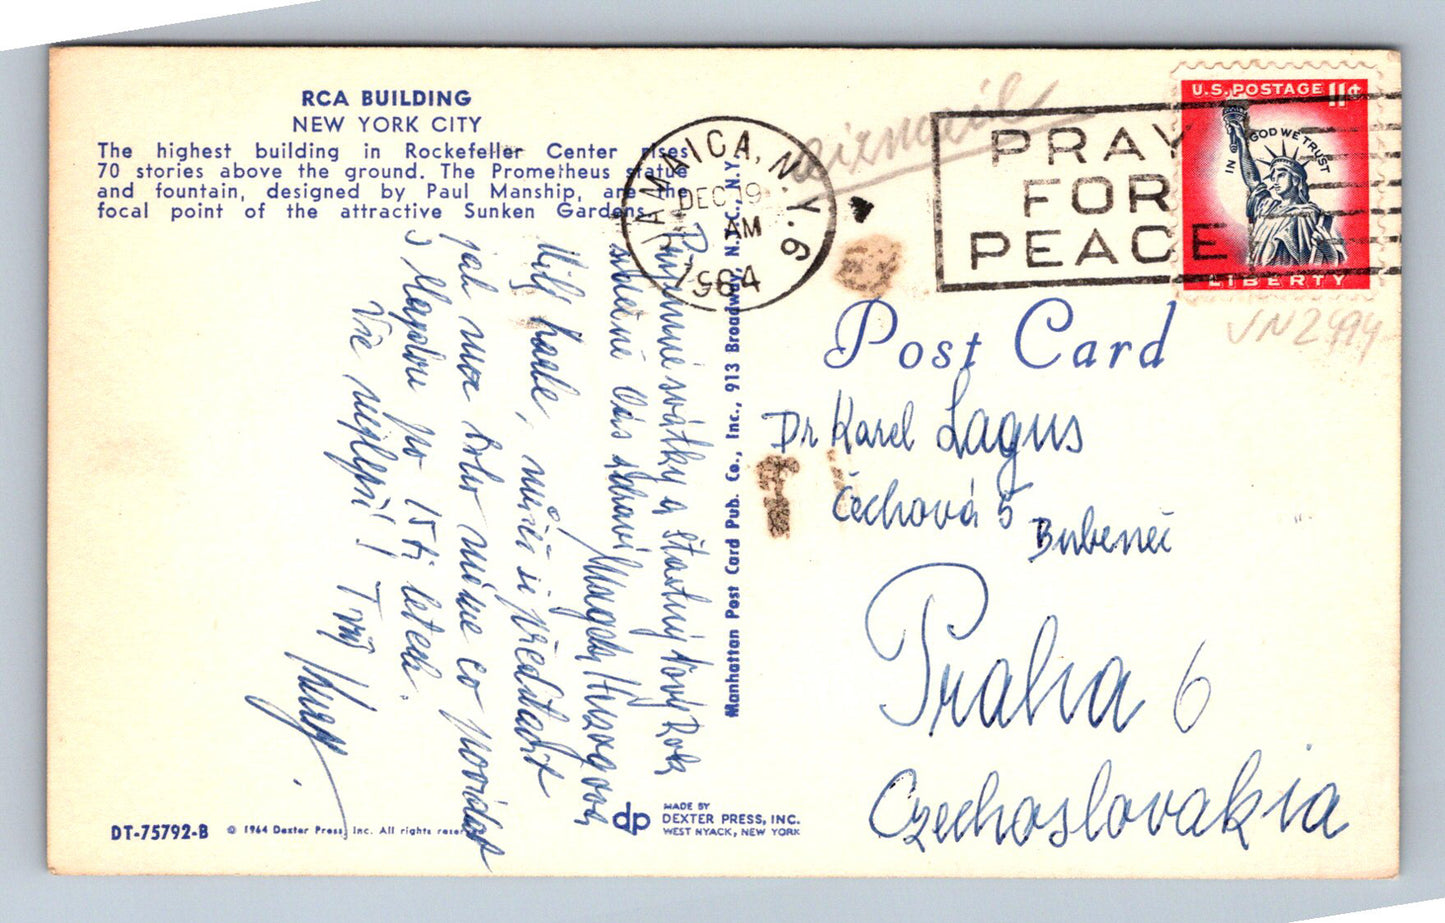 RCA BUILDING
NEW YORK CITY
The highest building in Rockefeller Center rises
70 stories above the ground. The Prometheus statue
and fountain, designed by Paul Manship, are the
focal point of the attractive Sunken Gardens.
Příjemné svátky a šťastný Nový Rok
srdečně Vás zdraví Magda Herzogová
Milý Karle, můžeš si představit
jak moc toho máme co povídat
s Magdou po 15ti letech.
Vše nejlepší! Tvůj
DT-75792-B © 1964 Dexter Press, Inc. All rights reser
Manhattan Post Card Pub. Co., Inc., 913 Broadway, N.Y.C., N.Y.
dp
MADE BY
DEXTER PRESS, INC.
WEST NYACK, NEW YORK
airmail
JAMAICA, N.Y. 9
DEC 19
AM
1964
PRAY
FOR
PEACE
U.S. POSTAGE 11¢
IN GOD WE TRUST
LIBERTY
VN2494
Post Card
Dr Karel Lagus
Čechová 5
Bubeneč
Praha 6
Czechoslovakia